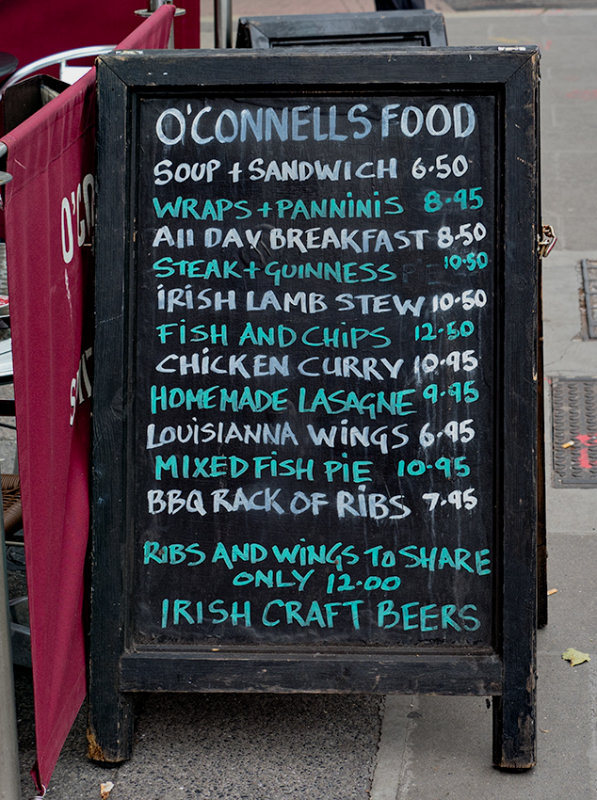 O'CONNELLS FOOD
SOUP + SANDWICH 6.50
WRAPS + PANNINIS 8.95
All DAY BREAKFAST 8.50
STEAK + GUINNESS 10.50
IRISH LAMB STEW 10.50
FISH AND CHIPS 12.50
CHICKEN CURRY 10.95
HOMEMADE LASAGNE 9.95
LOUISIANNA WINGS 6.95
MIXED FISH PIE 10.95
BBQ RACK OF RIBS 7.95
RIBS AND WINGS TO SHARE
ONLY 12.00
IRISH CRAFT BEERS